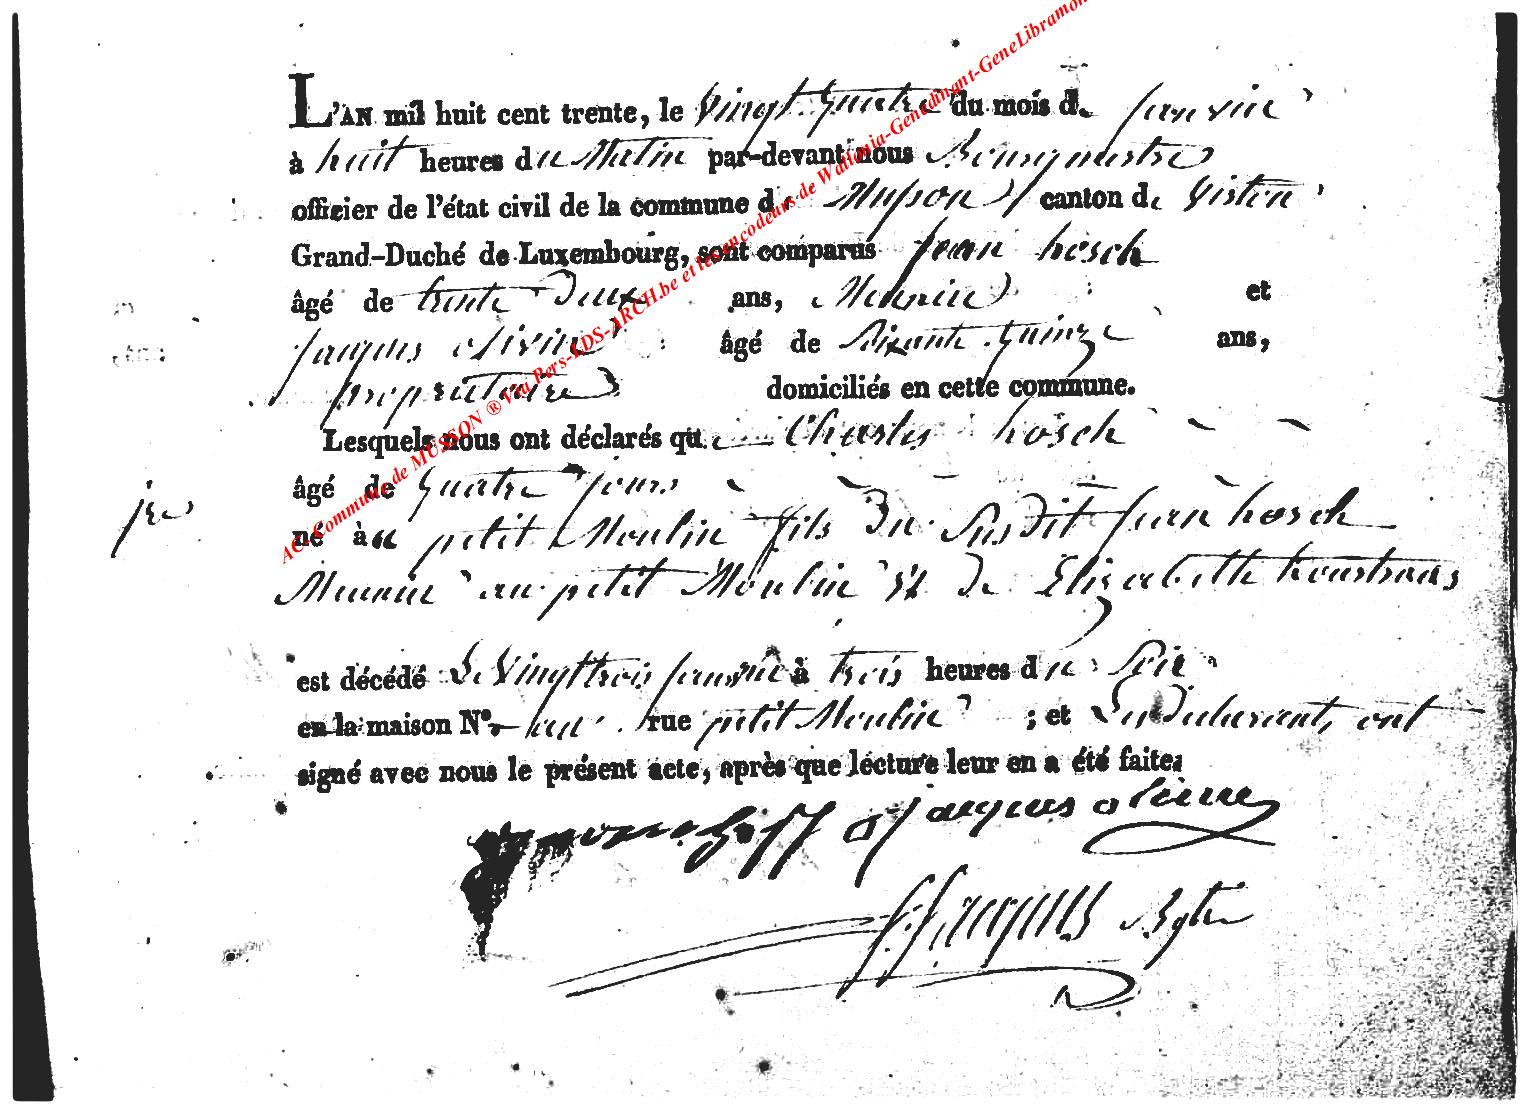 L'AN mil huit cent trente, le Vingt quatre du mois de Janvier
à huit heures du Matin par-devant nous Bourgmestre
officier de l'état civil de la commune de Musson canton de Virton
Grand-Duché de Luxembourg, sont comparus Jean hosch
âgé de trente Deux ans, Meunier et
Jacques olivier âgé de Soixante quinze ans,
proprietaire domiciliés en cette commune.
Lesquels nous ont déclarés que Charles hosch
âgé de quatre jours
né à au petit Moulin fils Du Susdit Jean hosch
Meunier au petit Moulin et de Elizabeth
est décédé Le Vingt trois Janvier à trois heures du Soir
en la maison N°. un rue petit Moulin ; et Les Déclarants ont
signé avec nous le présent acte, après que lecture leur en a été faite.
jacques olivier
Bgtre
AC Commune de MUSSON ® Via Pers-LDS-ARCH.be et les encodeurs de Wallonia-Genedinant-GeneLibramon